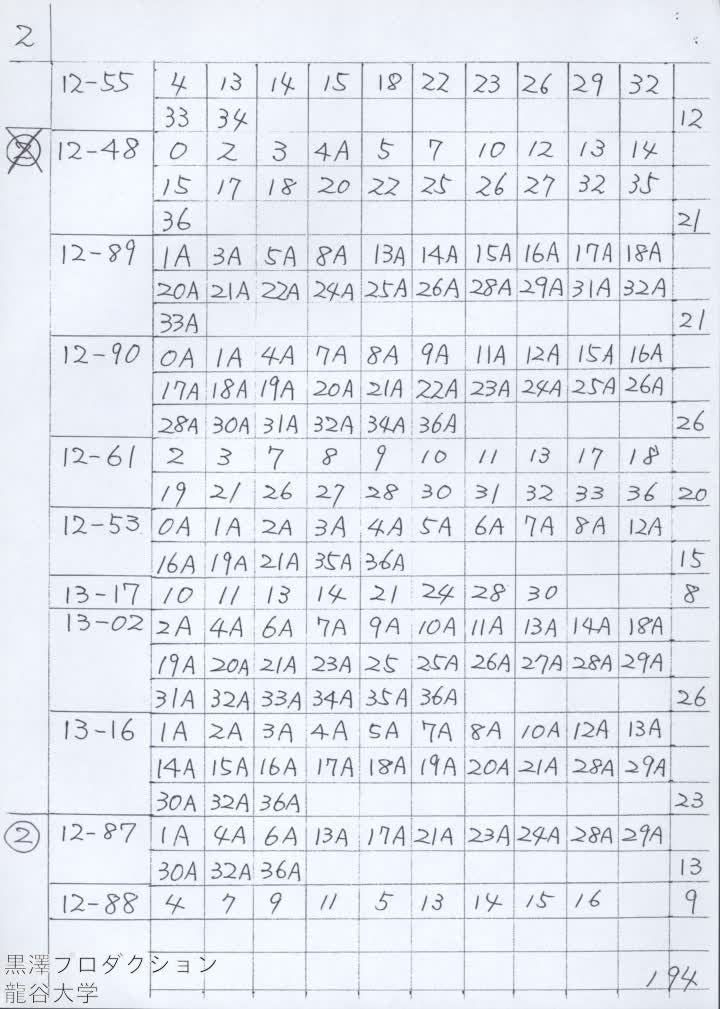 2
12-55 4 13 14 15 18 22 23 26 29 32
33 34 12
2 12-48 0 2 3 4A 5 7 10 12 13 14
15 17 18 20 22 25 26 27 32 35
36 21
12-89 1A 3A 5A 8A 13A 14A 15A 16A 17A 18A
20A 21A 22A 24A 25A 26A 28A 29A 31A 32A
33A 21
12-90 0A 1A 4A 7A 8A 9A 11A 12A 15A 16A
17A 18A 19A 20A 21A 22A 23A 24A 25A 26A
28A 30A 31A 32A 34A 36A 26
12-61 2 3 7 8 9 10 11 13 17 18
19 21 26 27 28 30 31 32 33 36 20
12-53 0A 1A 2A 3A 4A 5A 6A 7A 8A 12A
16A 19A 21A 35A 36A 15
13-17 10 11 13 14 21 24 28 30 8
13-02 2A 4A 6A 7A 9A 10A 11A 13A 14A 18A
19A 20A 21A 23A 25 25A 26A 27A 28A 29A
31A 32A 33A 34A 35A 36A 26
13-16 1A 2A 3A 4A 5A 7A 8A 10A 12A 13A
14A 15A 16A 17A 18A 19A 20A 21A 28A 29A
30A 32A 36A 23
2 12-87 1A 4A 6A 13A 17A 21A 23A 24A 28A 29A
30A 32A 36A 13
12-88 4 7 9 11 5 13 14 15 16 9
194
黒澤プロダクション
龍谷大学